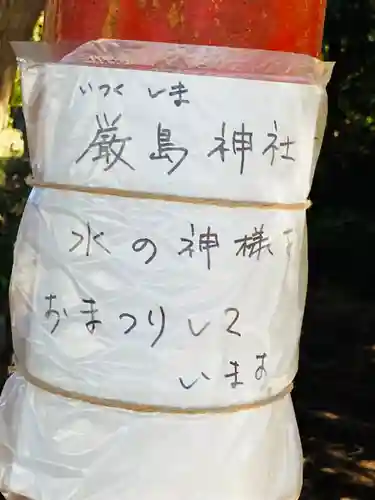 いつくしま
厳島神社
水の神様を
おまつりして
います